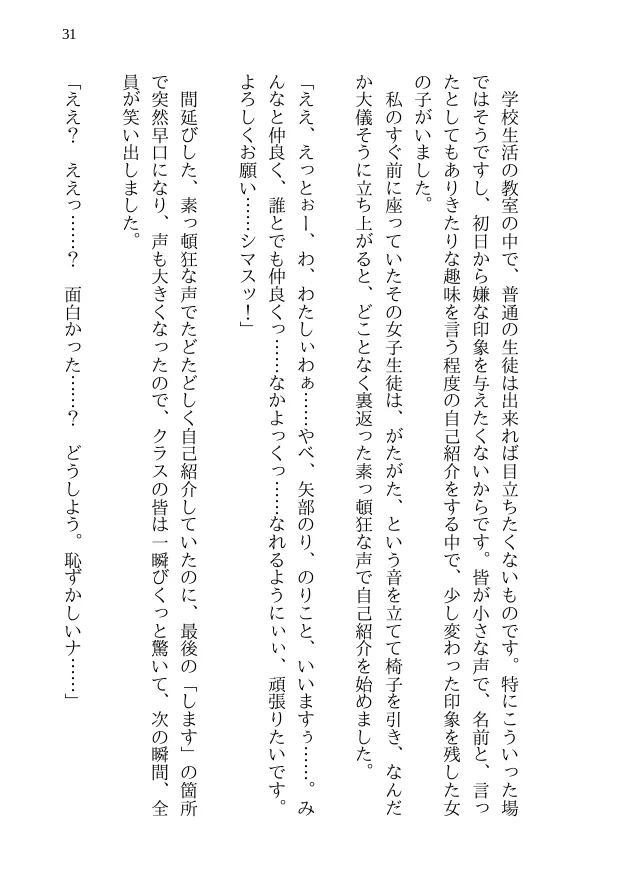 31
　学校生活の教室の中で、普通の生徒は出来れば目立ちたくないものです。特にこういった場
ではそうですし、初日から嫌な印象を与えたくないからです。皆が小さな声で、名前と、言っ
たとしてもありきたりな趣味を言う程度の自己紹介をする中で、少し変わった印象を残した女
の子がいました。
　私のすぐ前に座っていたその女子生徒は、がたがた、という音を立てて椅子を引き、なんだ
か大儀そうに立ち上がると、どことなく裏返った素っ頓狂な声で自己紹介を始めました。
「ええ、えっとぉー、わ、わたしぃわぁ……やべ、矢部のり、のりこと、いいますぅ……。み
んなと仲良く、誰とでも仲良くっ……なかよっくっ……なれるようにぃぃ、頑張りたいです。
よろしくお願い……シマスッ！」
　間延びした、素っ頓狂な声でたどたどしく自己紹介していたのに、最後の「します」の箇所
で突然早口になり、声も大きくなったので、クラスの皆は一瞬びくっと驚いて、次の瞬間、全
員が笑い出しました。
「ええ？　ええっ……？　面白かった……？　どうしよう。恥ずかしいナ……」